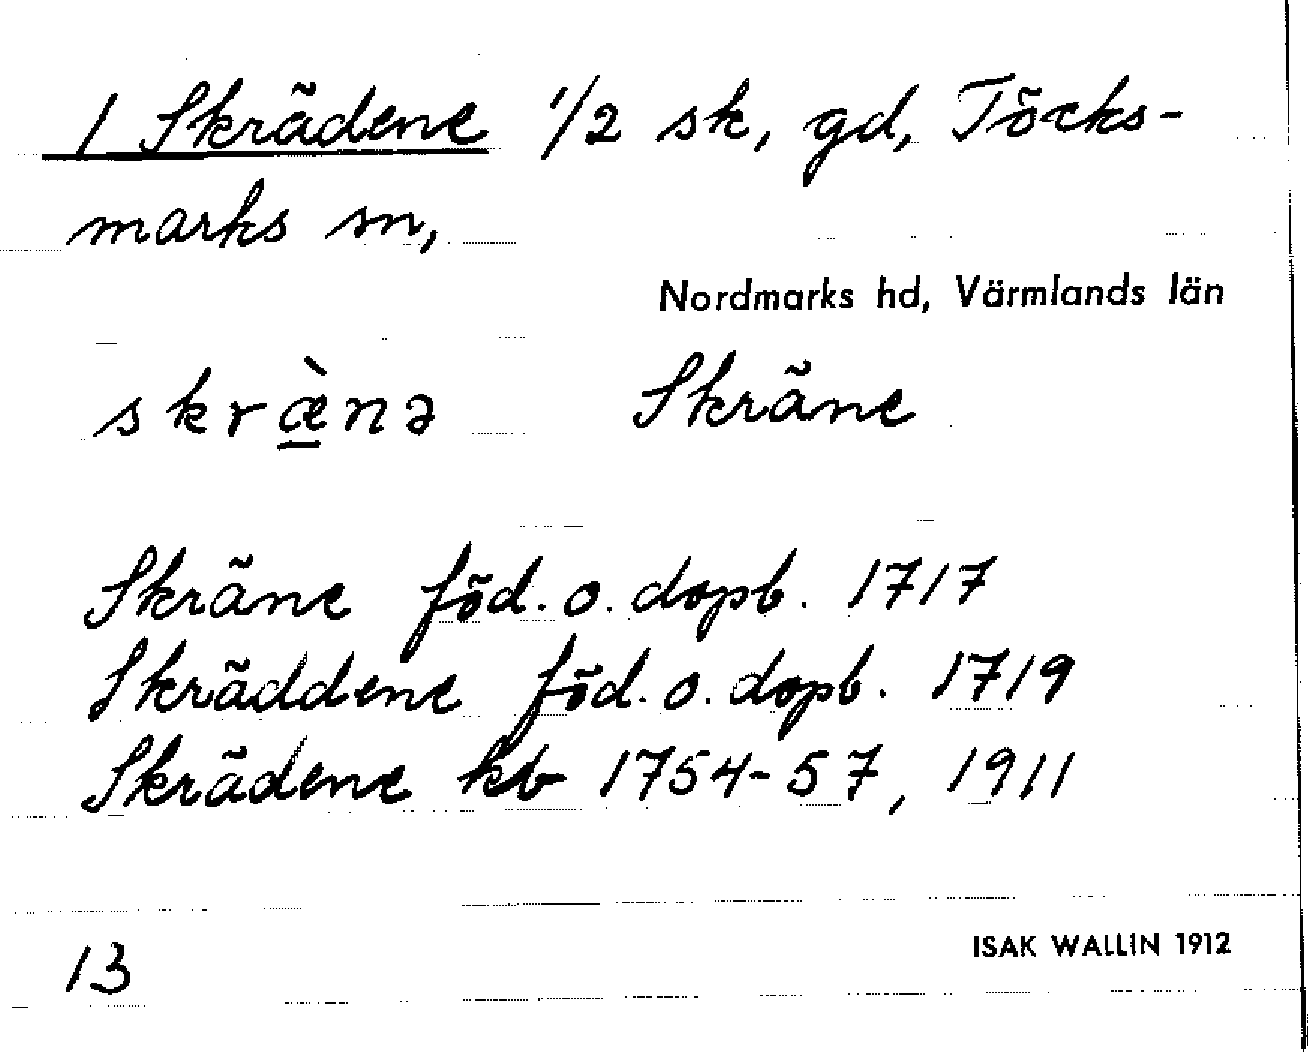 1 Skrädene 1/2 sk, gd, Töcks-
marks sn,
Nordmarks hd, Värmlands län
skræ̠̀nə Skräne
Skräne föd. o. dopb. 1717
Skräddene föd. o. dopb. 1719
Skrädene kb 1754-57, 1911
13
ISAK WALLIN 1912